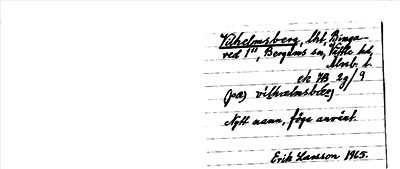 Vilhelmsberg, lht, Binga-
red 1", Bergums sn, Vättle hd,
Älvsb. l.
ek 7B 2g/9
(pa) vilhælmsbærj
Nytt namn, föga använt.
Erik Larsson 1965.